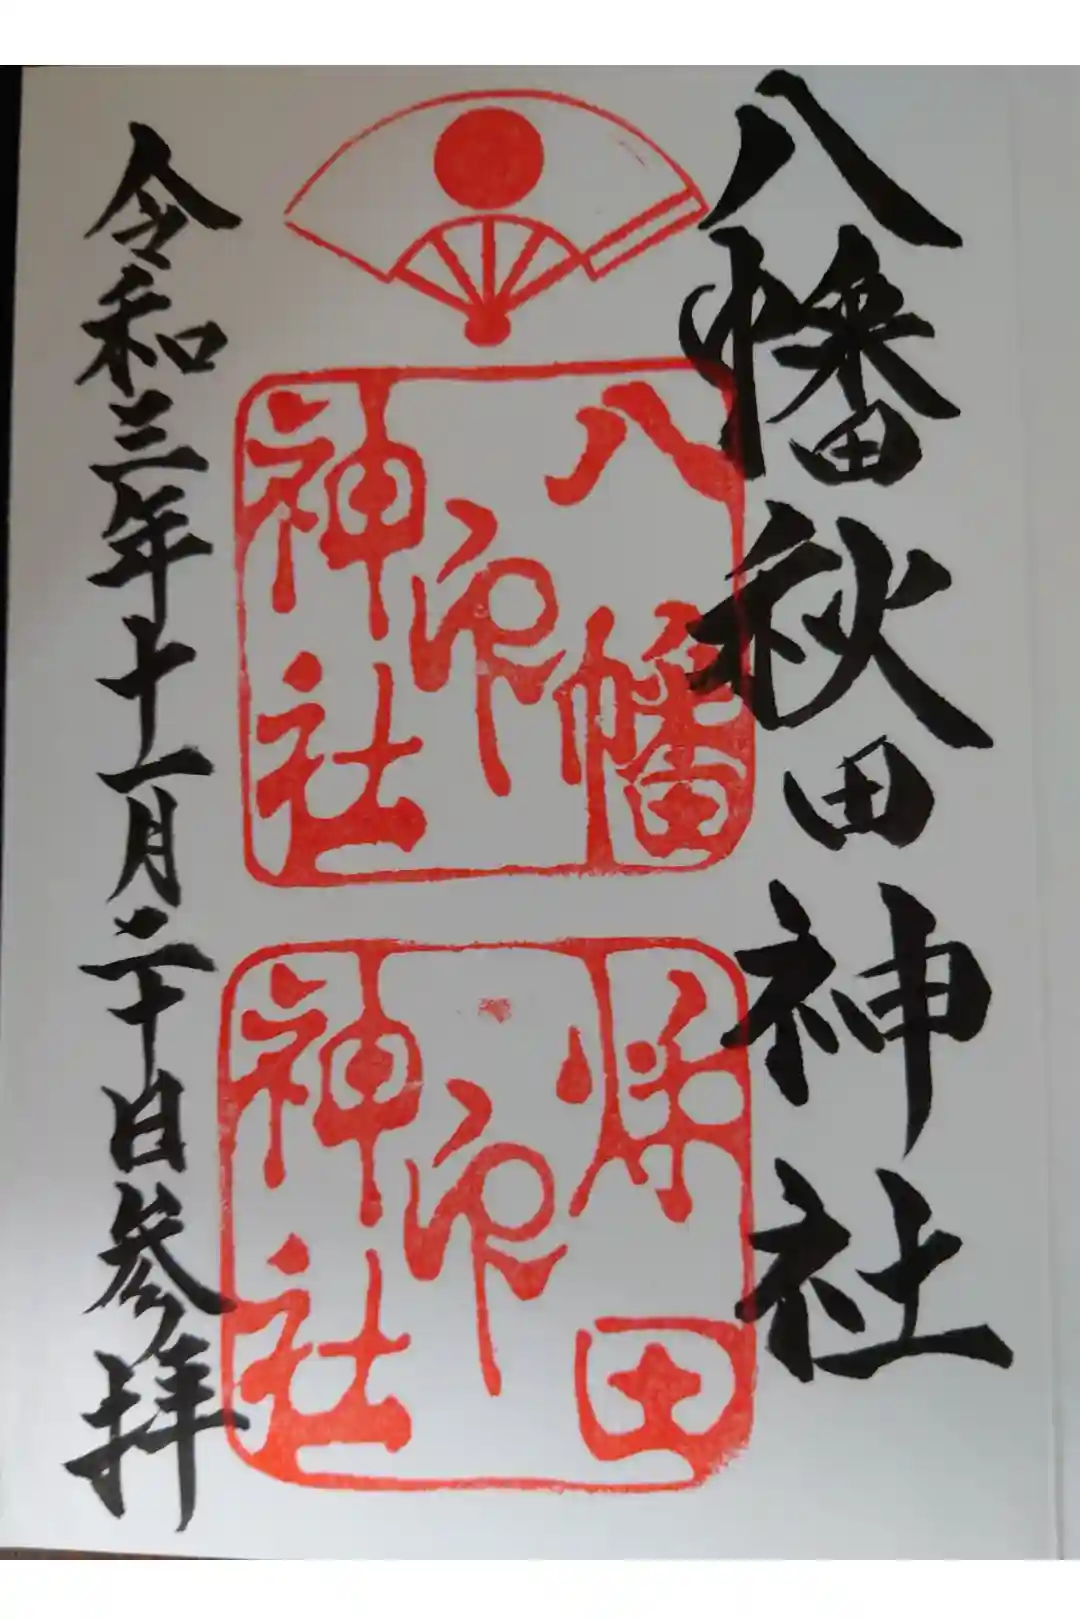 八幡秋田神社
八幡
神社
印
秋田
神社
印
令和三年十一月二十日参拝